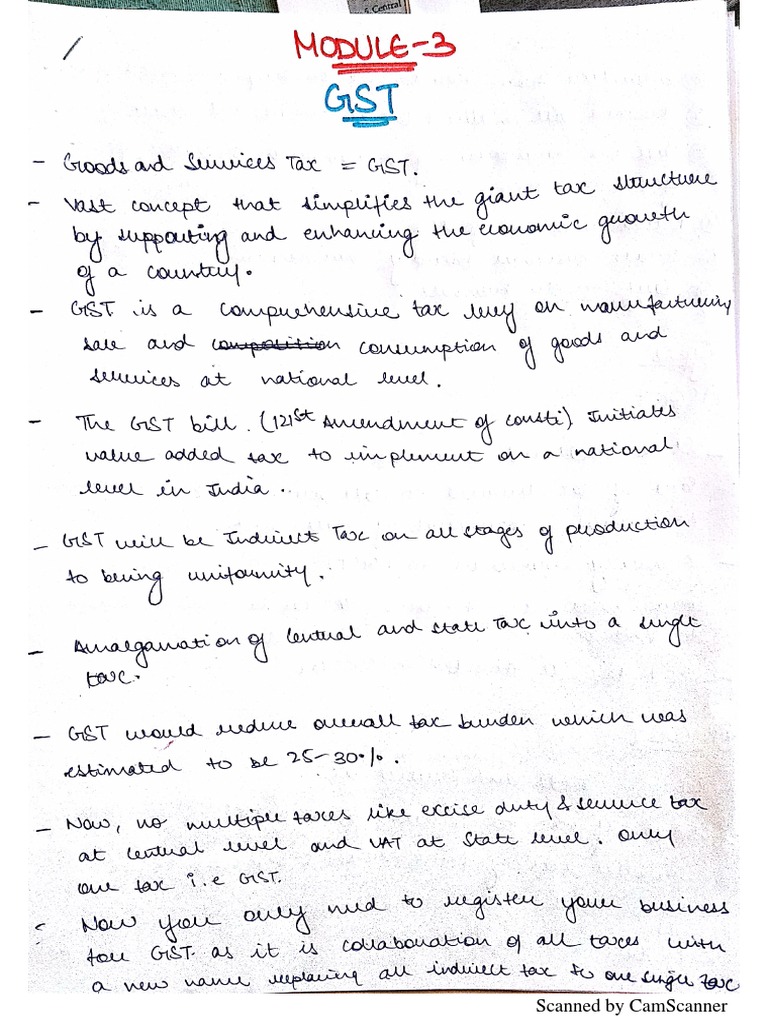 5. Central
1
MODULE-3
GST
- Goods and Services Tax = GST.
- Vast concept that simplifies the giant tax structure
by supporting and enhancing the economic growth
of a country.
- GST is a comprehensive tax levy on manufacturing
sale and composition consumption of goods and
services at national level.
- The GST bill (121st Amendment of consti) Initiates
value added tax to implement on a national
level in India.
- GST will be Indirect Tax on all stages of production
to bring uniformity.
- Amalgamation of Central and state Tax into a single
tax.
- GST would reduce overall tax burden which was
estimated to be 25-30%.
- Now, no multiple taxes like excise duty & service tax
at Central level and VAT at State level. Only
one tax i.e GST.
Now you only need to register your business
for GST. as it is collaboration of all taxes with
a new name replacing all indirect tax to one single tax
Scanned by CamScanner